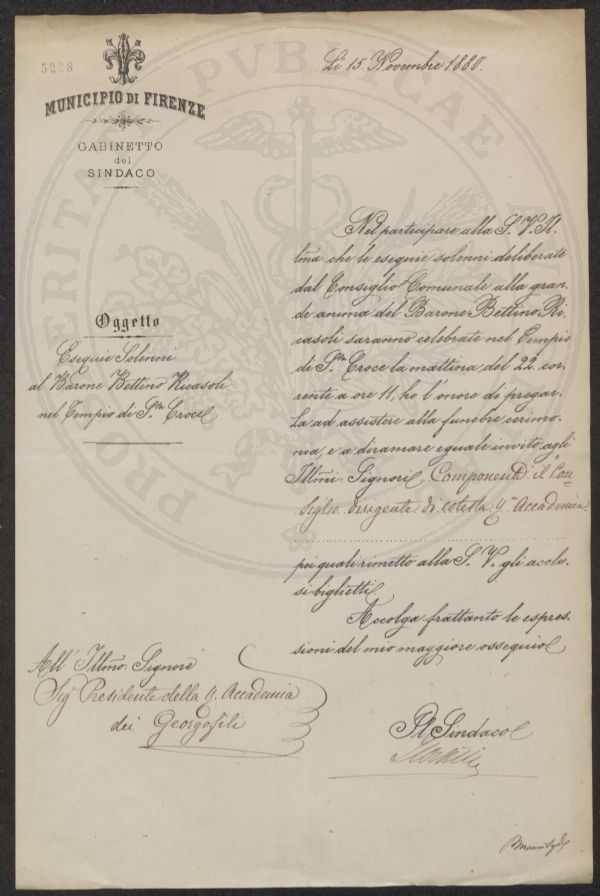 5208
MUNICIPIO DI FIRENZE
GABINETTO
del
SINDACO
Li 15. Novembre 1880.
Oggetto
Esequie Solenni
al Barone Bettino Ricasoli
nel Tempio di S.ta Croce
Nel partecipare alla S. V. Il-
lma che le esequie solenni deliberate
dal Consiglio Comunale alla gran-
de anima del Barone Bettino Ri-
casoli saranno celebrate nel Tempio
di S.ta Croce la mattina del 22. cor-
rente a ore 11, ho l'onore di pregar-
La ad assistere alla funebre cerimo-
nia, e a diramare eguale invito agli
Illmi Signori Componenti il Con-
siglio dirigente di cotesta R.a Accademia
pei quali rimetto alla S. V. gli acclu-
si biglietti.
Accolga frattanto le espres-
sioni del mio maggiore ossequio
All' Illmo Signore
Sig Presidente della R. Accademia
dei Georgofili
Pl Sindaco
PUBLICAE
PROSPERITATI